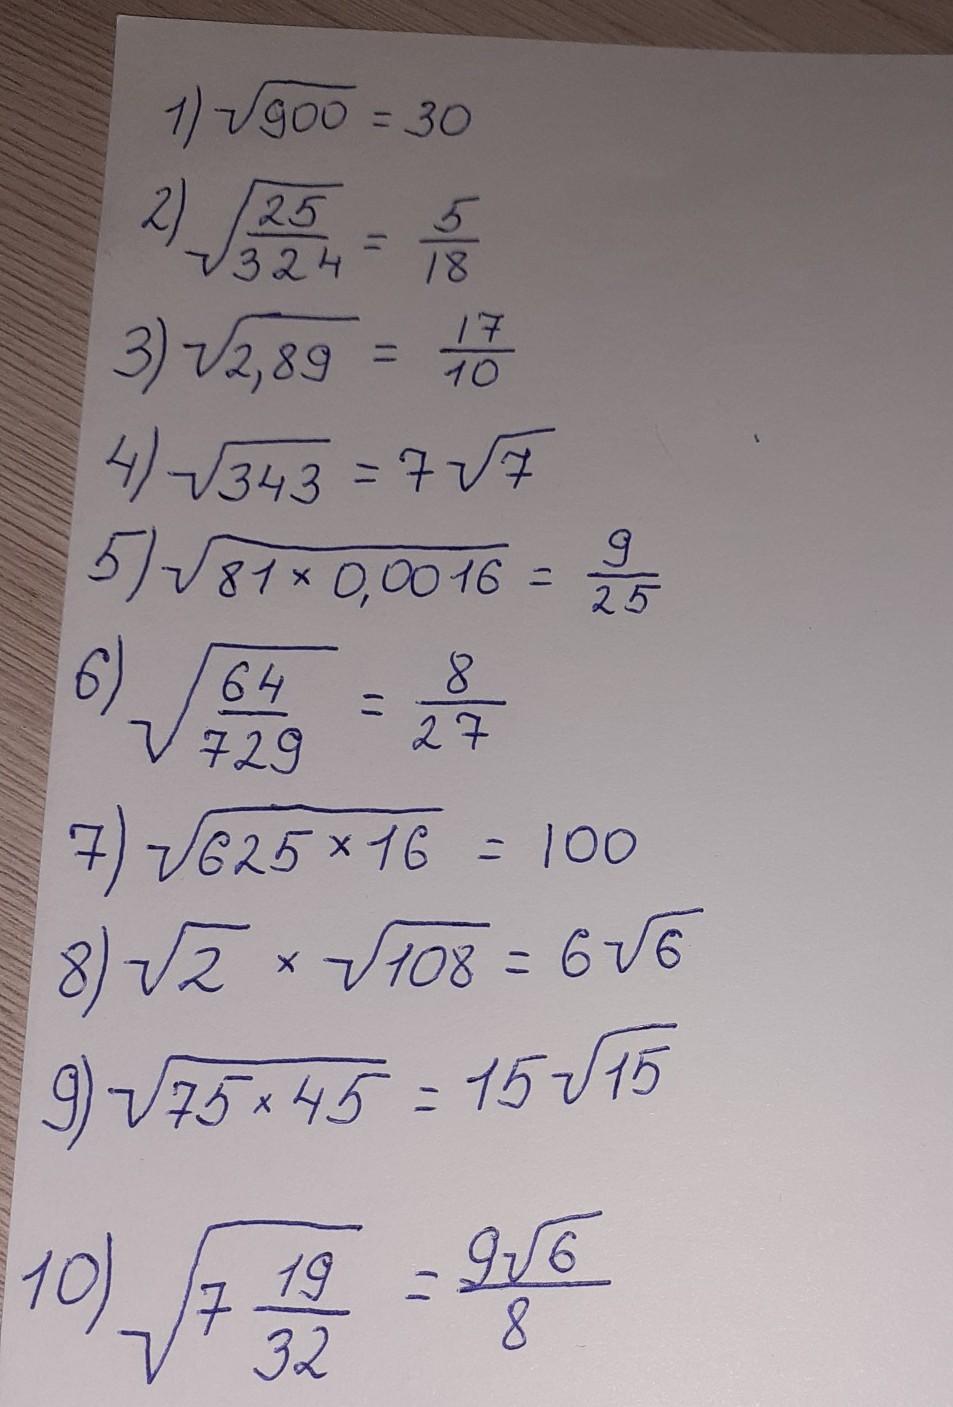 1) √900 = 30
2) √(25/324) = 5/18
3) √2,89 = 17/10
4) √343 = 7√7
5) √(81 × 0,0016) = 9/25
6) √(64/729) = 8/27
7) √(625 × 16) = 100
8) √2 × √108 = 6√6
9) √(75 × 45) = 15√15
10) √(7 19/32) = 9√6/8